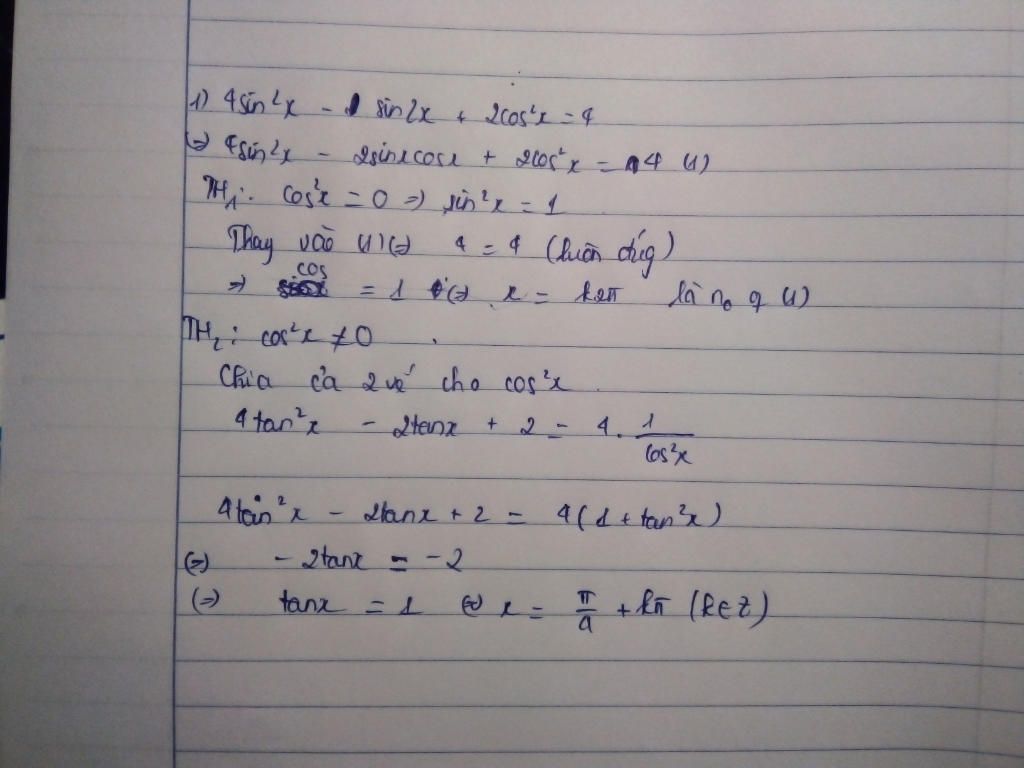 1) 4sin²x - 1 sin2x + 2cos²x = 4
(=) 4sin²x - 2sinxcosx + 2cos²x = 4 (1)
TH₁: cos²x = 0 => sin²x = 1
Thay vào (1) (=) 4 = 4 (luôn đúg)
=> cos = 1 (=) x = k2π là n₀ q (1)
TH₂: cos²x ≠ 0
Chia cả 2 vế cho cos²x
4tan²x - 2tanx + 2 = 4. 1/cos²x
4tan²x - 2tanx + 2 = 4(1 + tan²x)
(=) - 2tanx = -2
(=) tanx = 1 (=) x = π/4 + kπ (k∈Z)